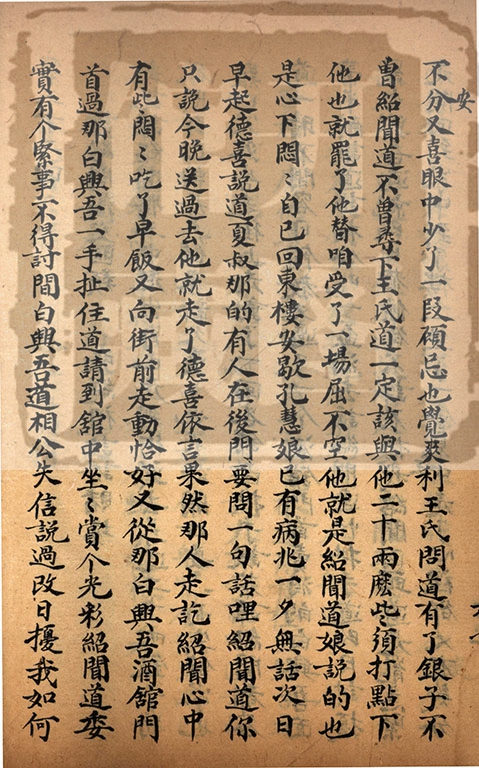 不分又喜眼中少了一段碩忌也覺爽利王氏問道有了銀子不
安
曽紹聞道不曽尋下王氏道一定該與他二十兩麽些須打點下
他也就罷了他替咱受了一場屈不空他就是紹聞道娘說的也
是心下悶〻自已回東樓安歇孔慧娘已有病兆一夕無話次日
早起德喜説道夏叔那的有人在後門要問一句話哩紹聞道你
只說今晚送過去他就走了德喜依言果然那人走訖紹聞心中
有些悶〻吃了早飯又向街前走動恰好又從那白興吾酒舘門
首過那白興吾一手扯住道請到舘中坐〻賞个光彩紹聞道委
實有个緊事不得討閒白興吾道相公失信説過改日擾我如何